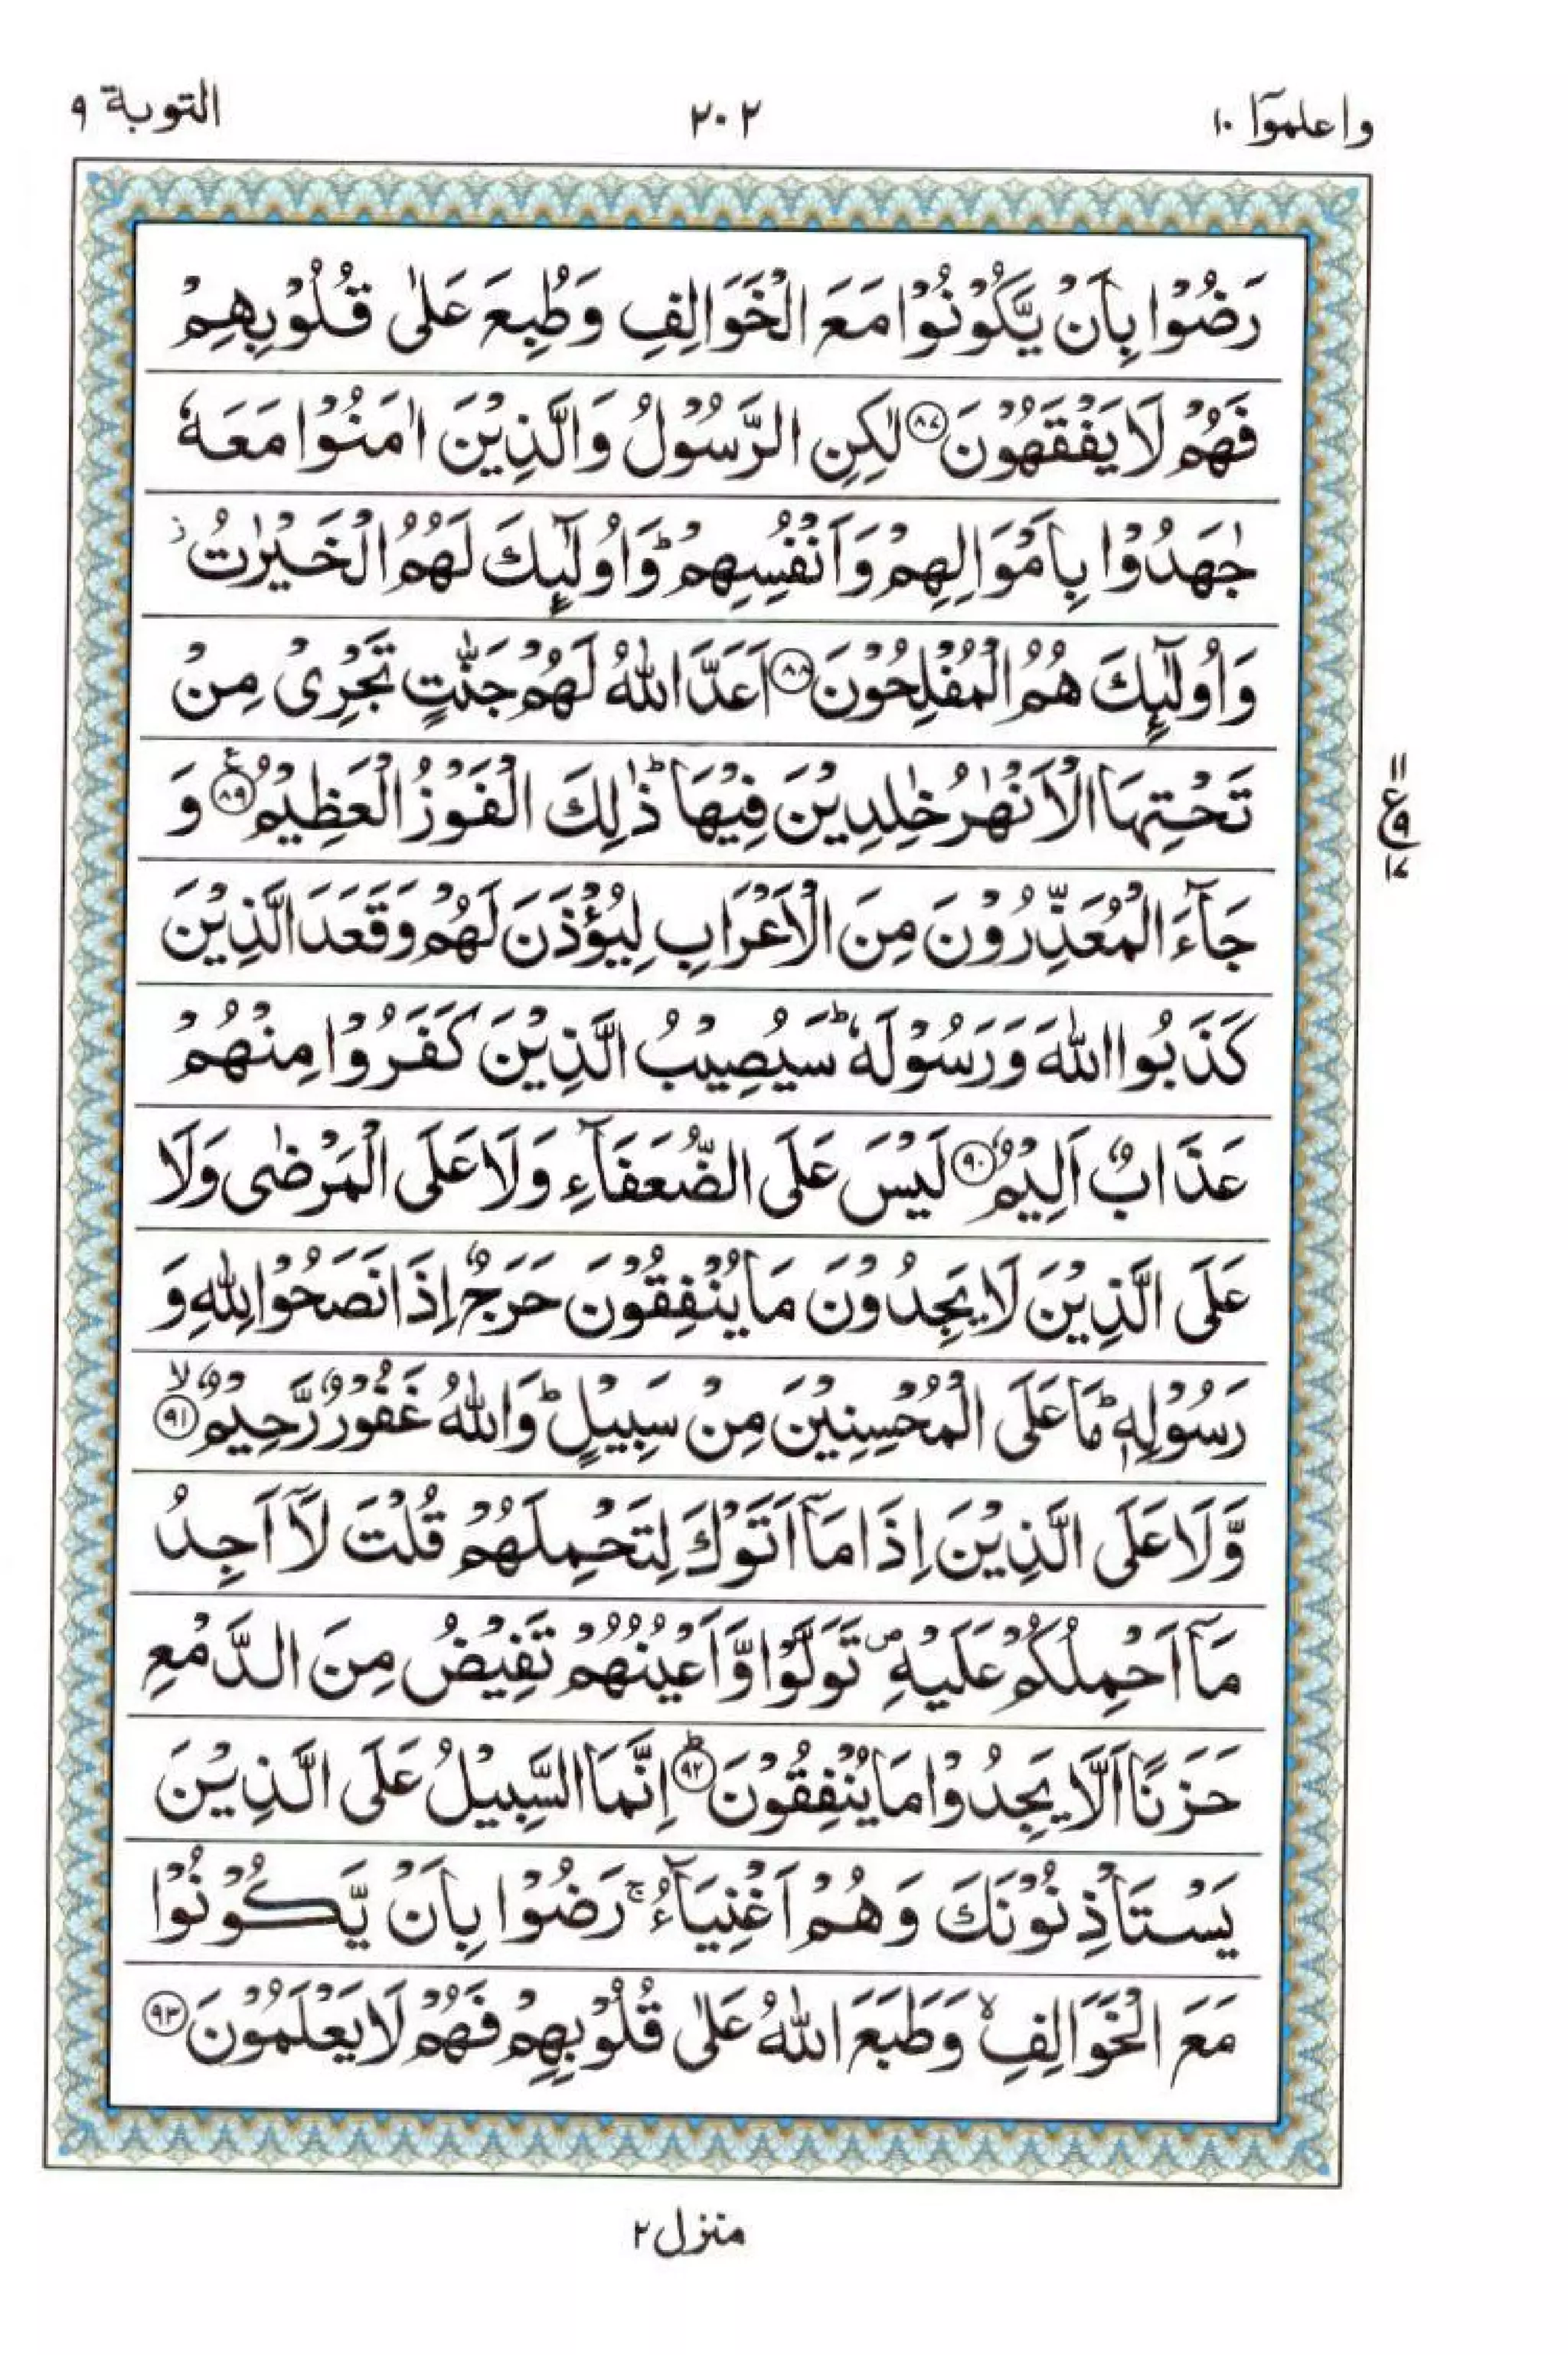 واعلموٓا ١٠
٢٠٢
التوبة ٩
رَضُوۡا بِاَنۡ يَّكُوۡنُوۡا مَعَ الۡخَوَالِفِ وَطُبِعَ عَلٰى قُلُوۡبِهِمۡ
فَهُمۡ لَا يَفۡقَهُوۡنَ ﴿۸۷﴾ لٰكِنِ الرَّسُوۡلُ وَالَّذِيۡنَ اٰمَنُوۡا مَعَهٗ
جٰهَدُوۡا بِاَمۡوَالِهِمۡ وَاَنۡفُسِهِمۡ ؕ وَاُولٰٓٮِٕكَ لَهُمُ الۡخَيۡرٰتُ ؗ
وَاُولٰٓٮِٕكَ هُمُ الۡمُفۡلِحُوۡنَ ﴿۸۸﴾ اَعَدَّ اللّٰهُ لَهُمۡ جَنّٰتٍ تَجۡرِىۡ مِنۡ
تَحۡتِهَا الۡاَنۡهٰرُ خٰلِدِيۡنَ فِيۡهَا ؕ ذٰلِكَ الۡفَوۡزُ الۡعَظِيۡمُ ﴿۸۹﴾ وَ
جَآءَ الۡمُعَذِّرُوۡنَ مِنَ الۡاَعۡرَابِ لِيُؤۡذَنَ لَهُمۡ وَقَعَدَ الَّذِيۡنَ
كَذَبُوا اللّٰهَ وَرَسُوۡلَهٗ ؕ سَيُصِيۡبُ الَّذِيۡنَ كَفَرُوۡا مِنۡهُمۡ
عَذَابٌ اَلِيۡمٌ ﴿۹۰﴾ لَيۡسَ عَلَى الضُّعَفَآءِ وَلَا عَلَى الۡمَرۡضٰى وَلَا
عَلَى الَّذِيۡنَ لَا يَجِدُوۡنَ مَا يُنۡفِقُوۡنَ حَرَجٌ اِذَا نَصَحُوۡا لِلّٰهِ وَ
رَسُوۡلِهٖ ؕ مَا عَلَى الۡمُحۡسِنِيۡنَ مِنۡ سَبِيۡلٍ ؕ وَاللّٰهُ غَفُوۡرٌ رَّحِيۡمٌ ۙ﴿۹۱﴾
وَّلَا عَلَى الَّذِيۡنَ اِذَا مَاۤ اَتَوۡكَ لِتَحۡمِلَهُمۡ قُلۡتَ لَاۤ اَجِدُ
مَاۤ اَحۡمِلُكُمۡ عَلَيۡهِ ۪ تَوَلَّوۡا وَّاَعۡيُنُهُمۡ تَفِيۡضُ مِنَ الدَّمۡعِ
حَزَنًا اَلَّا يَجِدُوۡا مَا يُنۡفِقُوۡنَ ؕ﴿۹۲﴾ اِنَّمَا السَّبِيۡلُ عَلَى الَّذِيۡنَ
يَسۡتَاۡذِنُوۡنَكَ وَهُمۡ اَغۡنِيَآءُ ۚ رَضُوۡا بِاَنۡ يَّكُوۡنُوۡا
مَعَ الۡخَوَالِفِ ۙ وَطَبَعَ اللّٰهُ عَلٰى قُلُوۡبِهِمۡ فَهُمۡ لَا يَعۡلَمُوۡنَ ﴿۹۳﴾
١١
ع ٩
١٧
منزل ٢